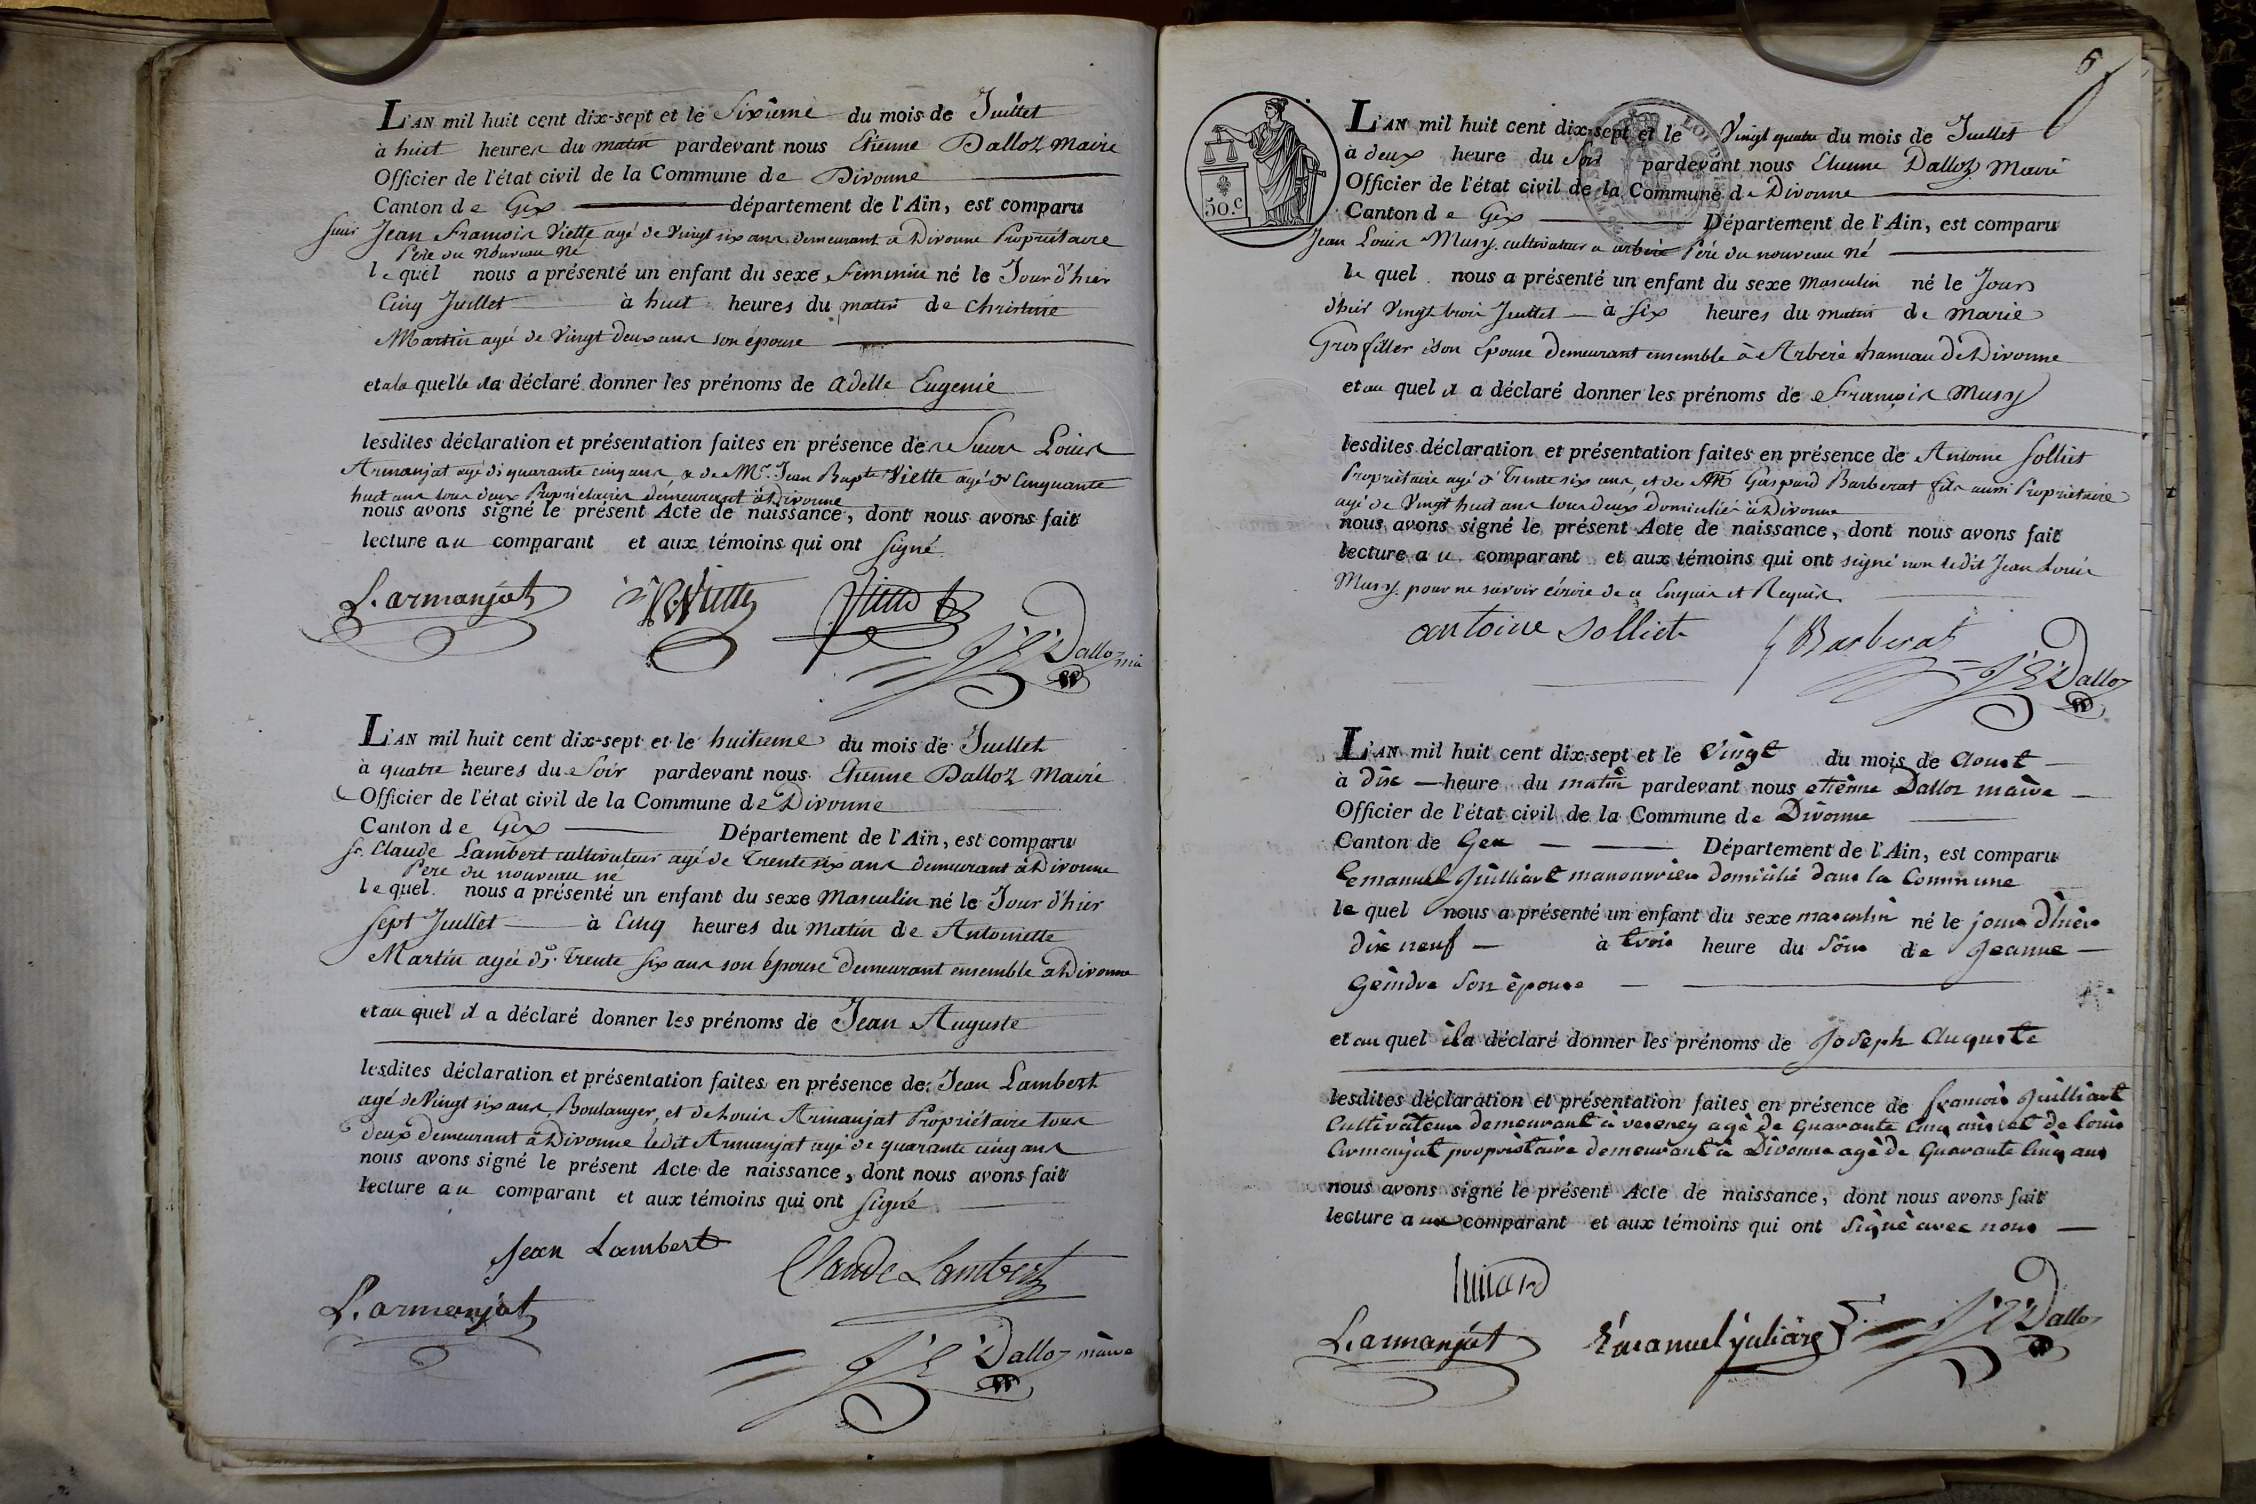 L'AN mil huit cent dix-sept et le Sixieme du mois de Juillet
à huit heures du matin pardevant nous Etienne Dalloz Maire
Officier de l'état civil de la Commune de Divonne
Canton de Gex département de l'Ain, est comparu
Sieur Jean François Viette agé de Vingt six ans demeurant a Divonne Propriétaire
Père du nouveau né
lequel nous a présenté un enfant du sexe Feminin né le Jour d'hier
Cinq Juillet à huit heures du matin de Christine
Martin agée de Vingt deux ans son épouse
et a la quelle il a déclaré donner les prénoms de Adelle Eugenie
lesdites déclaration et présentation faites en présence de Sieurs Louis
Armanjat agé de quarante cinq ans & de Mr. Jean Bapte Viette agé de Cinquante
huit ans tous deux Propriétaires demeurant à Divonne
nous avons signé le présent Acte de naissance, dont nous avons fait
lecture au comparant et aux témoins qui ont signé
L. armanjat Viette
J E Dalloz
L'AN mil huit cent dix-sept et le huitieme du mois de Juillet
à quatre heures du Soir pardevant nous Etienne Dalloz Maire
Officier de l'état civil de la Commune de Divonne
Canton de Gex Département de l'Ain, est comparu
Sr. Claude Lambert cultivateur agé de Trente six ans demeurant à Divonne
Père du nouveau né
lequel nous a présenté un enfant du sexe Masculin né le Jour d'hier
Sept Juillet à Cinq heures du Matin de Antoinette
Martin agée de Trente Six ans son épouse demeurant ensemble à Divonne
et au quel il a déclaré donner les prénoms de Jean Auguste
lesdites déclaration et présentation faites en présence de Jean Lambert
agé de Vingt six ans, Boulanger, et de Louis Armanjat Propriétaire tous
deux demeurant à Divonne ledit Armanjat agé de quarante cinq ans
nous avons signé le présent Acte de naissance, dont nous avons fait
lecture au comparant et aux témoins qui ont signé
Jean Lambert Claude Lambert
L. armanjat
J E Dalloz maire
6
50.c
L'AN mil huit cent dix-sept et le Vingt quatre du mois de Juillet
à deux heure du Soir pardevant nous Etienne Dalloz Maire
Officier de l'état civil de la Commune de Divonne
Canton de Gex Département de l'Ain, est comparu
Jean Louis Musy cultivateur a arbere Père du nouveau né
le quel nous a présenté un enfant du sexe Masculin né le Jour
d'hier Vingt trois Juillet à Six heures du matin de Marie
Grosfiller son Epouse demeurant ensemble à Arbere hameau de Divonne
et au quel il a déclaré donner les prénoms de François Musy
lesdites déclaration et présentation faites en présence de Antoine Solliet
Propriétaire agé de Trente six ans, et de Gaspard Barberat fils aussi Propriétaire
agé de Vingt huit ans tous deux domiciliés à Divonne
nous avons signé le présent Acte de naissance, dont nous avons fait
lecture au comparant et aux témoins qui ont signé non ledit Jean Louis
Musy pour ne savoir écrire de ce Enquis et Requis
antoine Solliet G Barberat
J E Dalloz
L'AN mil huit cent dix-sept et le Vingt du mois de Aoust
à dix heure du matin pardevant nous etiénne Dalloz maire
Officier de l'état civil de la Commune de Divonne
Canton de Gex Département de l'Ain, est comparu
Emanuel Juilliart manouvrier domicilié dans la Commune
le quel nous a présenté un enfant du sexe masculin né le jour d'hier
dix neuf à trois heure du Soir de Jeanne
Geindre Son épouse
et au quel il a déclaré donner les prénoms de Joseph Auguste
lesdites déclaration et présentation faites en présence de François Juilliart
Cultivateur demeurant à vesency agé de Quarante Cinq ans et de Louis
Armanjat propriétaire demeurant à Divonne agé de Quarante Cinq ans
nous avons signé le présent Acte de naissance, dont nous avons fait
lecture au comparant et aux témoins qui ont Signé avec nous
L. armanjat Emanuel juliare J E Dalloz